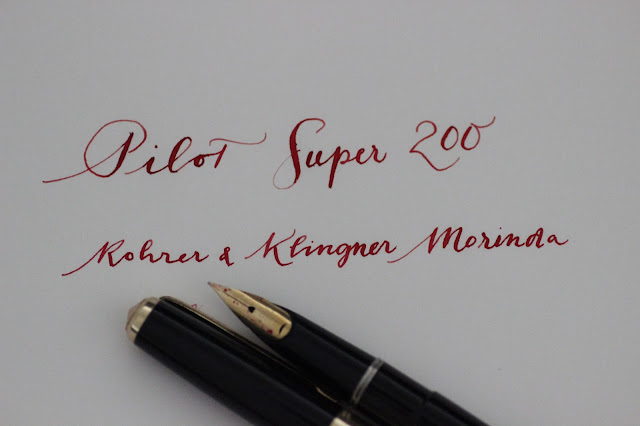 Pilot Super 200
Rohrer & Klingner Morinda